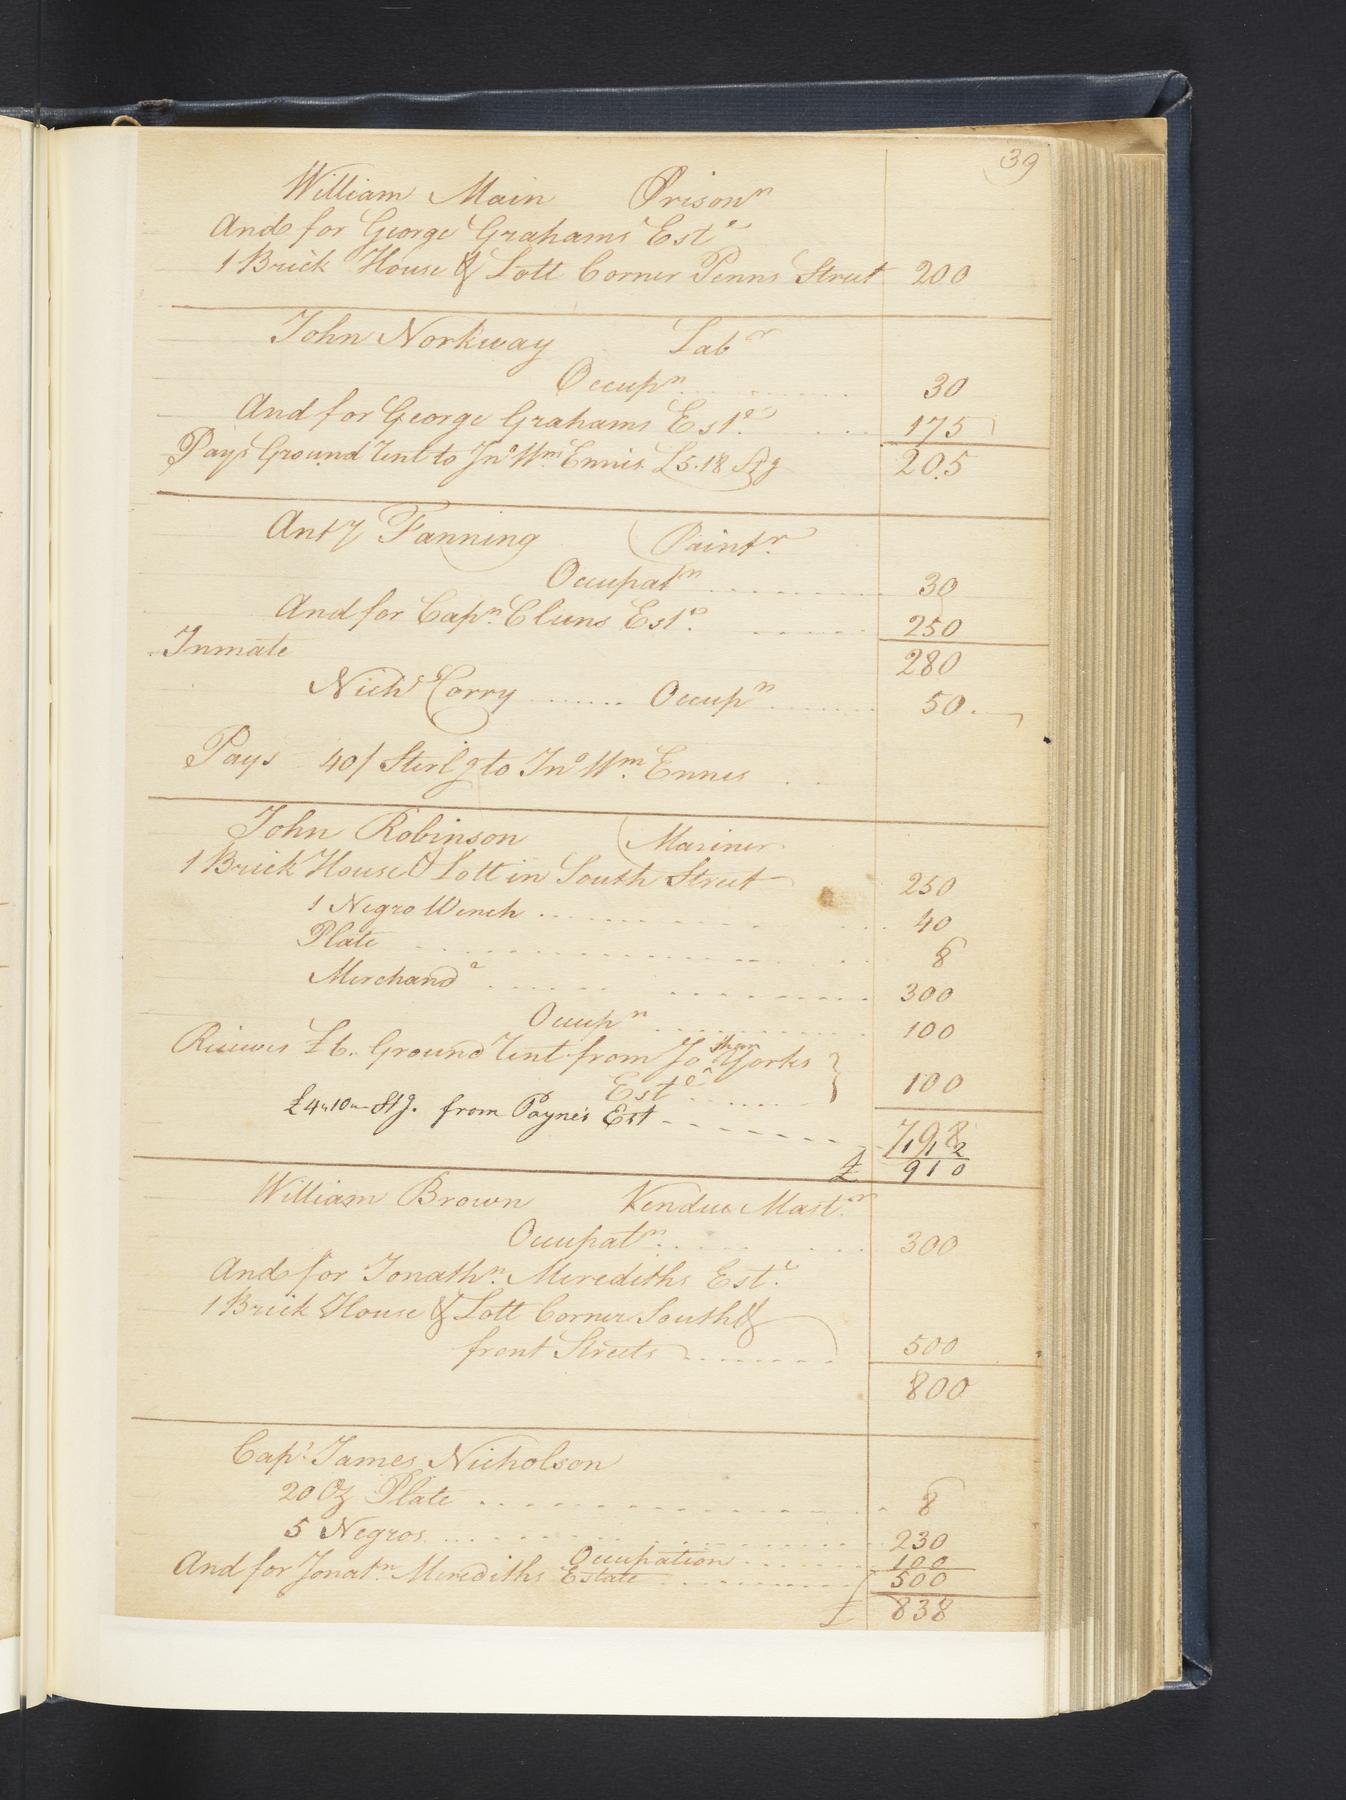 39
William Main Prison^n
And for George Grahams Est^e
1 Brick House & Lott Corner Penns Street 200
John Norkway Lab^r
Occup^n 30
And for George Grahams Est^e 175
Pays Ground Rent to Jn^o W^m Ennis £5.18 Stg 205
Ant^y Fanning Paint^r
Occupat^n 30
And for Cap^n Cluns Est^e 250
Inmate 280
Nich^s Corry Occup^n 50
Pays 40/ Sterlg to Jn^o W^m Ennis
John Robinson Mariner
1 Brick House & Lott in South Street 250
1 Negro Wench 40
Plate 8
Merchand^e 300
Occup^n 100
Recieves £6. Ground Rent from Jo^than Yorks
Est^e 100
£4"10" Stg. from Payne's Est 798
112
£ 910
William Brown Vendue Mast^r
Occupat^n 300
And for Jonath^n Merediths Est^e
1 Brick House & Lott Corner South &
front Streets 500
800
Cap^t James Nicholson
20 Oz Plate 8
5 Negros 230
Occupation 100
And for Jonat^n Merediths Estate 500
£ 838